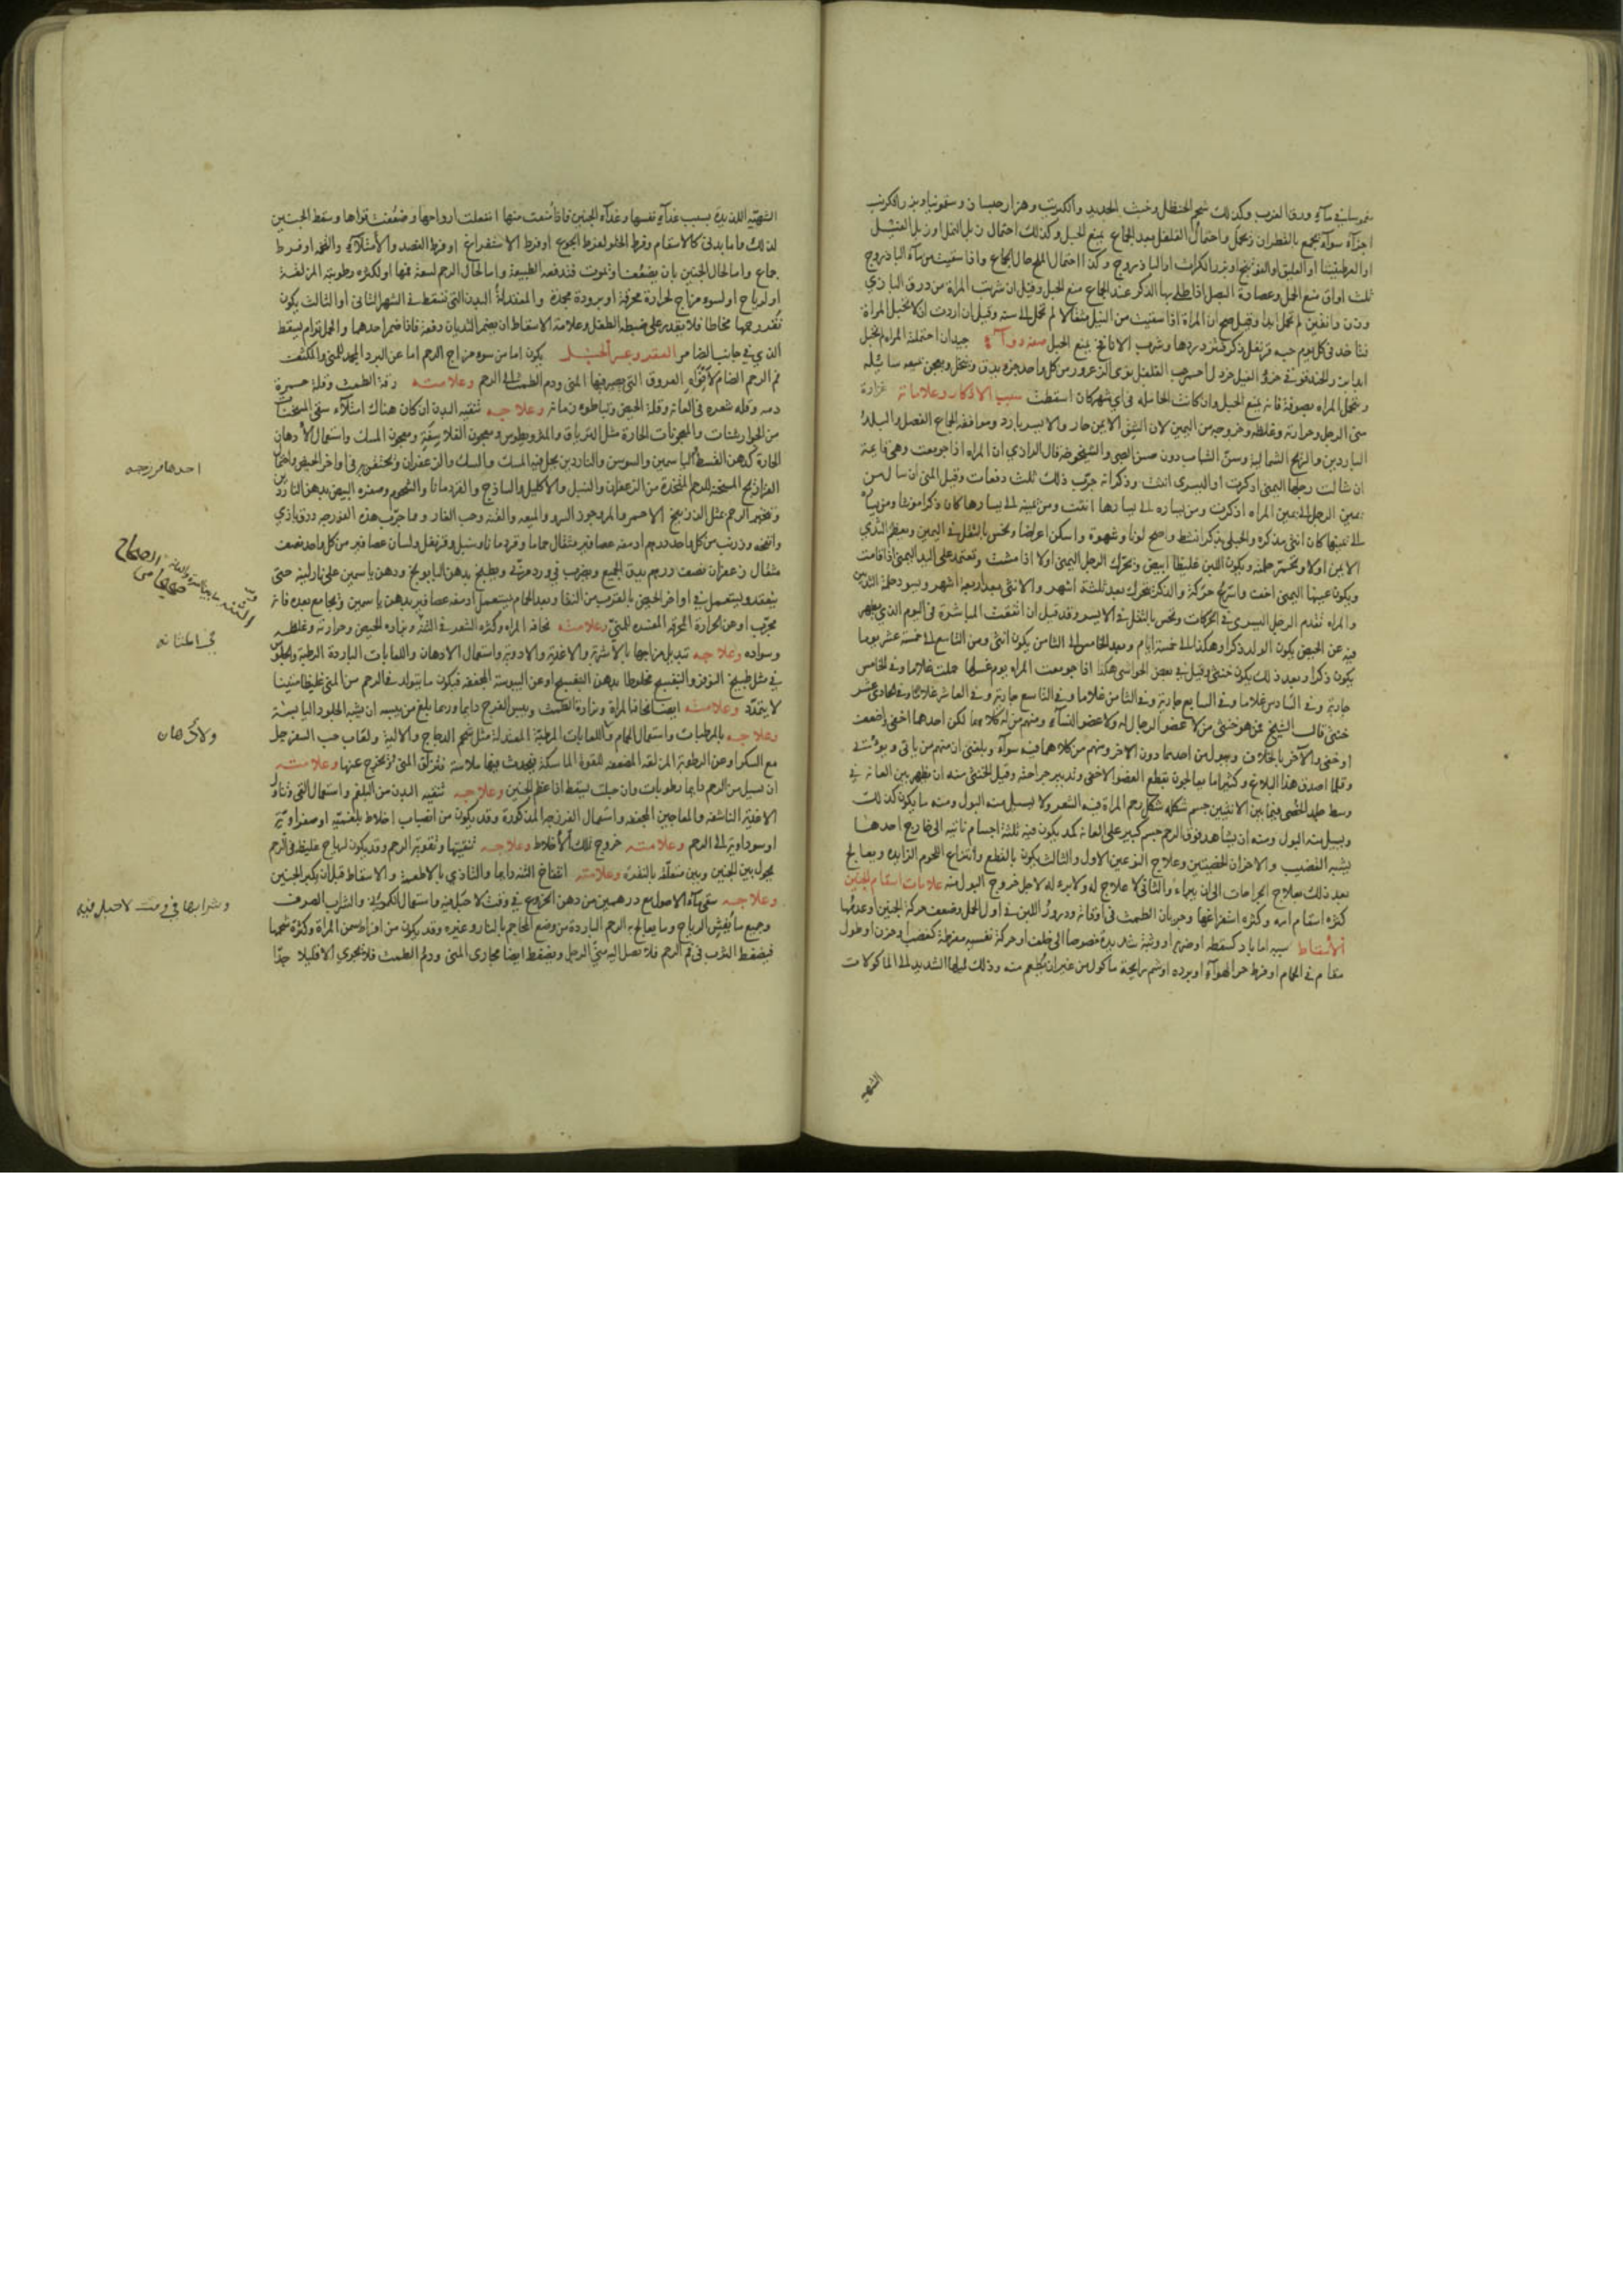 مغموسا في مآء ورق الغرب وكذلك شحم الحنظل وخبث الحديد والكبريت وهزارجسان وسقمونيا وبذر الكرنب
اجزآء سوآء يجمع بالقطران ويحمل واحتمال الفلفل بعد الجماع يمنع الحبل وكذلك احتمال زبل الفيل او زبل
او بزر الكراث او الباذروج وكذا احتمال الملح حال الجماع واذا سقيت من مآء الباذروج
ثلث اواق منع الحبل وعصارة البصل اذا طلي بها الذكر عند الجماع منع الحبل وقيل ان شربت المراة من ورق
لم تحمل ابدا وقيل صح ان المراة اذا سقيت من النيل مثقالا لم تحمل الى سنة وقيل ان اردت ان لا تحبل المراة
فتاخذ في كل يوم حبه قرنفل وشرب الانافح يمنع الحبل صفة دوآء جيد ان احتملته المراه لم تحبل
ابدا
وتتحمل المراه بصوفة فانه يمنع الحبل وان كانت الحامله في اي شهر كان اسقطت سبب الاذكار وعلاماته غزارة
مني الرجل وحرارته وغلظه وخروجه من اليمين لان الشق الايمن حار والايسر بارد وموافقة الجماع الفصل والبلد
الباردين والريح الشمالية وسن الشباب دون سن الصبى والشيخوخة قال الرازي ان المراه اذا جومعت وهى قايمة
ان شالت رجلها اليمنى اذكرت او اليسرى انثت وذكر انه جرب ذلك ثلث دفعات وقيل المنى ان سال من
يمين الرجل الى يمين المراه اذكرت ومن يساره الى يسارها انثت ومن يمينه الى يسارها كان ذكرا مونثا ومن يساره
الى يمينها كان انثى مذكرة والحبلى بذكر انشط واصح لونا وشهوة واسكن اعراضا وتحس بالثقل في اليمين ويعظم الثدي
الايمن اولا وتحمر حلمته ويكون اللبن غليظا ابيض وتحرك الرجل اليمنى اولا اذا مشت وتعتمد على اليد اليمنى اذا قامت
ويكون عينها اليمنى اخف واسرع حركة والذكر يتحرك بعد ثلثة اشهر والانثى بعد اربعة اشهر
والمراه تقدم الرجل اليسرى في الحركات وتحس بالثقل في الايسر وقد قيل ان اتفقت المباشرة في اليوم الذي يطهر
فيه عن الحيض يكون الولد ذكرا وهكذا الى خمسة ايام وبعد الخامس الى الثامن يكون انثى ومن التاسع الى خمسة عشر يوما
يكون ذكرا وبعد ذلك يكون خنثى وقيل في بعض الحواشى هكذا اذا جومعت المراه يوم غسلها حملت غلاما وفي الخامس
جارية وفي السادس غلاما وفي السابع جارية وفي الثامن غلاما وفي التاسع جارية وفي العاشر غلاما وفي الحادى عشر
خنثى قال الشيخ ممن هو خنثى من لا عضو الرجال له ولا عضو النسآء ومنهم من له كلاهما لكن احدهما اخفى واضعف
او خفى والآخر بالخلاف ويبول من احدهما دون الاخر ومنهم من كلاهما فيه سوآء وبلغنى ان منهم من ياتى ويوتى
وقلما اصدق هذا البلاغ وكثيرا ما يعالجون بقطع العضو الاخفى وتدبير جراحته وقيل الخنثى منه ان يظهر بين العانه في
وسط جلد الخصى فيما بين الانثيين جسم شكله شكل رحم المراة فيه الشعر ولا يسيل منه البول ومنه ما يكون كذلك
ويسيل منه البول ومنه ان يشاهد فوق الرحم جسم كبير على العانه يكون فيه ثلثة اجسام ناتية الى خارج احدها
يشبه القضيب والاخران الخصيتين وعلاج النوعين الاول والثالث يكون بالقطع وانتزاع اللحوم الزايده ويعالج
بعد ذلك بعلاج الجراحات الى ان يبراء والثانى لا علاج له ولا برء له لاجل خروج البول منه علامات اسقام الجنين
كثرة اسقام امه وكثره استفراغها وجريان الطمث في اوقاته ودرور اللبن في اول الحمل وضعف حركة الجنين او عدمها
الاسقاط سببه اما باد كسقطه او ضربه او وثبة شديدة خصوصا الى خلف او حركة نفسيه مفرطة كغضب او حزن او طول
مقام في الحمام او فرط حر الهوآء او برده او شم رايحة ماكول من غير ان يطعم منه وذلك لميلها الشديد الى الماكولات
الشهيه
الشهيّه اللذيذة بسبب غذآء نفسها وغذآء الجنين فاذا منعت منها انفعلت ارواحها وضعفت قواها وسقط الجنين
لذلك واما بدنى كالاسقام وفرط الخلو لفرط الجوع او فرط الاستفراغ او فرط الفصد والامتلآء والتخم او فرط
جماع واما لحال الجنين بان يضعف او يموت فتدفعه الطبيعة واما لحال الرحم لسعة فمها او لكثره رطوبته المزلقة
او لرياح او لسوء مزاج لحرارة محرقة او برودة مجمدة والمعتدلة البدن التى تسقط في الشهر الثانى او الثالث يكون
نقر رحمها مخاطا فلا يقدر على ضبط الطفل وعلامة الاسقاط ان يضمر الثديان دفعة فاذا ضمر احدهما والحمل توام يسقط
الذي في جانب الضامر العقر وعسر الحبل يكون اما من سوء مزاج الرحم اما عن البرد المجمد للمنى والمكثف
فم الرحم الضام لافواه العروق التى يصير فيها المنى ودم الطمث الى الرحم وعلامته رقة الطمث وقلة حمرة
دمه وقله شعره في العانه وقلة الحيض وتباطوء زمانه وعلاجه تنقيه البدن ان كان هناك امتلآء سقى المسخنات
من الجوارشنات والمعجونات الحارة مثل الترياق والمثروديطوس ومعجون الفلاسفة ومعجون المسك واستعمال الادهان
الحارة كدهن القسط والياسمين والسوسن والناردين يجعل فيه المسك والسك والزعفران ويحتقن به في اواخر الحيض واحتمال
الفرازيج المسخنة للرحم المتخذة من الزعفران والسنبل والاكليل والساذج والقردمانا والشحوم وصفره البيض بدهن الناردين
وتبخير الرحم بمثل الزرنيخ الاحمر والمر وجوز السرو والميعه والقنه وحب الغار ومما جرب هذه الفرزجه
مثقال زعفران نصف درهم يدق الجميع ويضرب في ويطبخ بدهن البابونج ودهن ياسمين على نار لينة حتى
ينعقد ويستعمل في اواخر الحيض بالقرب من النقا وبعد الحمام يستعمل بدهن ياسمين ويجامع بعده فانه
مجرّب او من الحرارة المحرقه المفسده للمنىّ وعلامته نحافة المراه وكثره الشعر في الثنه وحرارته وغلظه
وسواده وعلاجه تبديل مزاجها بالاشربة والاغذية والادوية واستعمال الادهان واللعابات الباردة الرطبة والجلوس
في مثل طبيخ النوفر والبنفسج مخلوطا بدهن البنفسج او عن اليبوسة المجففه فيكون ما يتولد في الرحم من المنى غليظا متينا
لا يتمدّد وعلامته ايضا نحافة المراة ونزارة الطمث ويبس الفرج دايما وربما بلغ من يبسه ان يشبه الجلود اليابسة
وعلاجه بالمرطبات واستعمال الحمام واللعابات المرطبة المعتدلة مثل شحم الدجاج والالية ولعاب حب السفرجل
مع السكر او عن الرطوبة المزلقه المضعفه للقوة الماسكة فيحدث فيها ملاسة فيزلق المنى ويخرج عنها وعلامته
ان يسيل من الرحم دايما رطوبات وان حبلت يسقط اذا عظم الجنين وعلاجه تنقيه البدن من البلغم واستعمال القى وتناول
الاغذية الناشفه والمعاجين المجففه واستعمال الفرزجه المذكورة وقد يكون من انصباب اخلاط بلغمية او صفراوية
او سوداوية الى الرحم وعلامته خروج تلك الاخلاط وعلاجه تنقيتها وتقوية الرحم وقد يكون لرياح غليظة في الرحم
يحول بين الجنين وبين متعلقه بالنقرة وعلامته انتفاخ الثنه دايما والتاذي بالاطعمة والاسقاط قبل ان يكبر الجنين
وعلاجه سقى مآء الاصول مع درهمين من دهن الخروع في وقت لا حبل فيه واستعمال الكمونى والشراب الصرف
وجميع ما يفش الرياح وما يعالج به الرحم الباردة من وضع المحاجم بالنار وغيره وقد يكون من افراط سمن المراة وكثرة شحمها
فيضغط الثرب في فم الرحم فلا يصل اليه منىّ الرجل ويضغط ايضا مجارى المنى ودم الطمث فلا يجري الا قليلا جدّا
احدها فرزجه
الثنه ما بين السرة والعانه
الصحاح
ولادهان
وشرابها في وقت لا حبل فيه